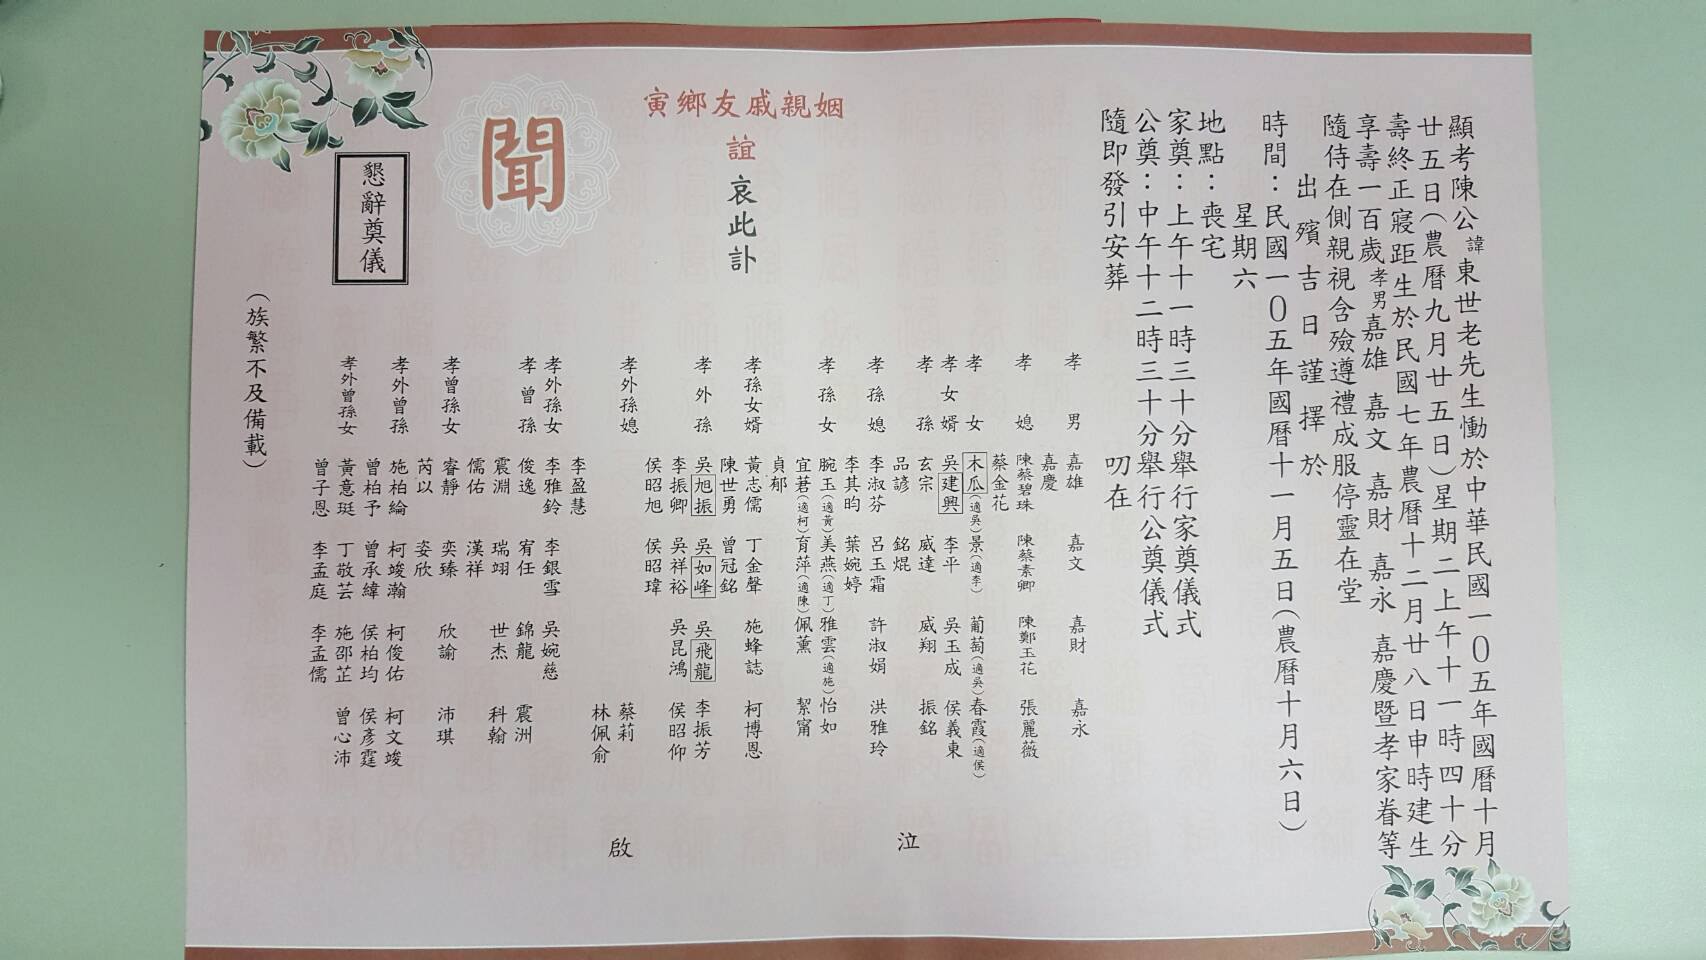 顯考陳公諱東世老先生慟於中華民國一0五年國曆十月
廿五日(農曆九月廿五日)星期二上午十一時四十分
壽終正寢距生於民國七年農曆十二月廿八日申時建生
享壽一百歲孝男嘉雄 嘉文 嘉財 嘉永 嘉慶暨孝家眷等
隨侍在側親視含殮遵禮成服停靈在堂
出殯吉日謹擇於
時間：民國一0五年國曆十一月五日(農曆十月六日)
星期六
地點：喪宅
家奠：上午十一時三十分舉行家奠儀式
公奠：中午十二時三十分舉行公奠儀式
隨即發引安葬 叨在
孝男 嘉雄 嘉文 嘉財 嘉永
嘉慶
孝媳 陳蔡碧珠 陳蔡素卿 陳鄭玉花 張麗薇
蔡金花
孝女 木瓜(適吳) 景(適李) 葡萄(適吳) 春霞(適侯)
孝女婿 吳建興 李平 吳玉成 侯義東
孝孫 玄宗 威達 威翔 振銘
品諺 銘焜
孝孫媳 李淑芬 呂玉霜 許淑娟 洪雅玲
李其昀 葉婉婷
孝孫女 腕玉(適黃) 美燕(適丁) 雅雲(適施) 怡如
宜莙(適柯) 育萍(適陳) 佩薰 絜甯
貞郁
孝孫女婿 黃志儒 丁金聲 施蜂誌 柯博恩
陳世勇 曾冠銘
孝外孫 吳旭振 吳如峰 吳飛龍 李振芳
李振卿 吳祥裕 吳昆鴻 侯昭仰
侯昭旭 侯昭瑋
孝外孫媳 蔡莉
林佩俞
李盈慧
孝外孫女 李雅鈴 李銀雪 吳婉慈
孝曾孫 俊逸 宥任 錦龍 震洲
震淵 瑞翊 世杰 科翰
儒佑 漢祥
孝曾孫女 睿靜 奕臻 欣諭 沛琪
芮以 姿欣
孝外曾孫 施柏綸 柯竣瀚 柯俊佑 柯文竣
曾柏予 曾承緯 侯柏均 侯彥霆
孝外曾孫女 黃意珽 丁敬芸 施邵芷 曾心沛
曾子恩 李孟庭 李孟儒
泣
啟
姻親戚友鄉寅
誼
哀此訃
聞
懇辭奠儀
(族繁不及備載)